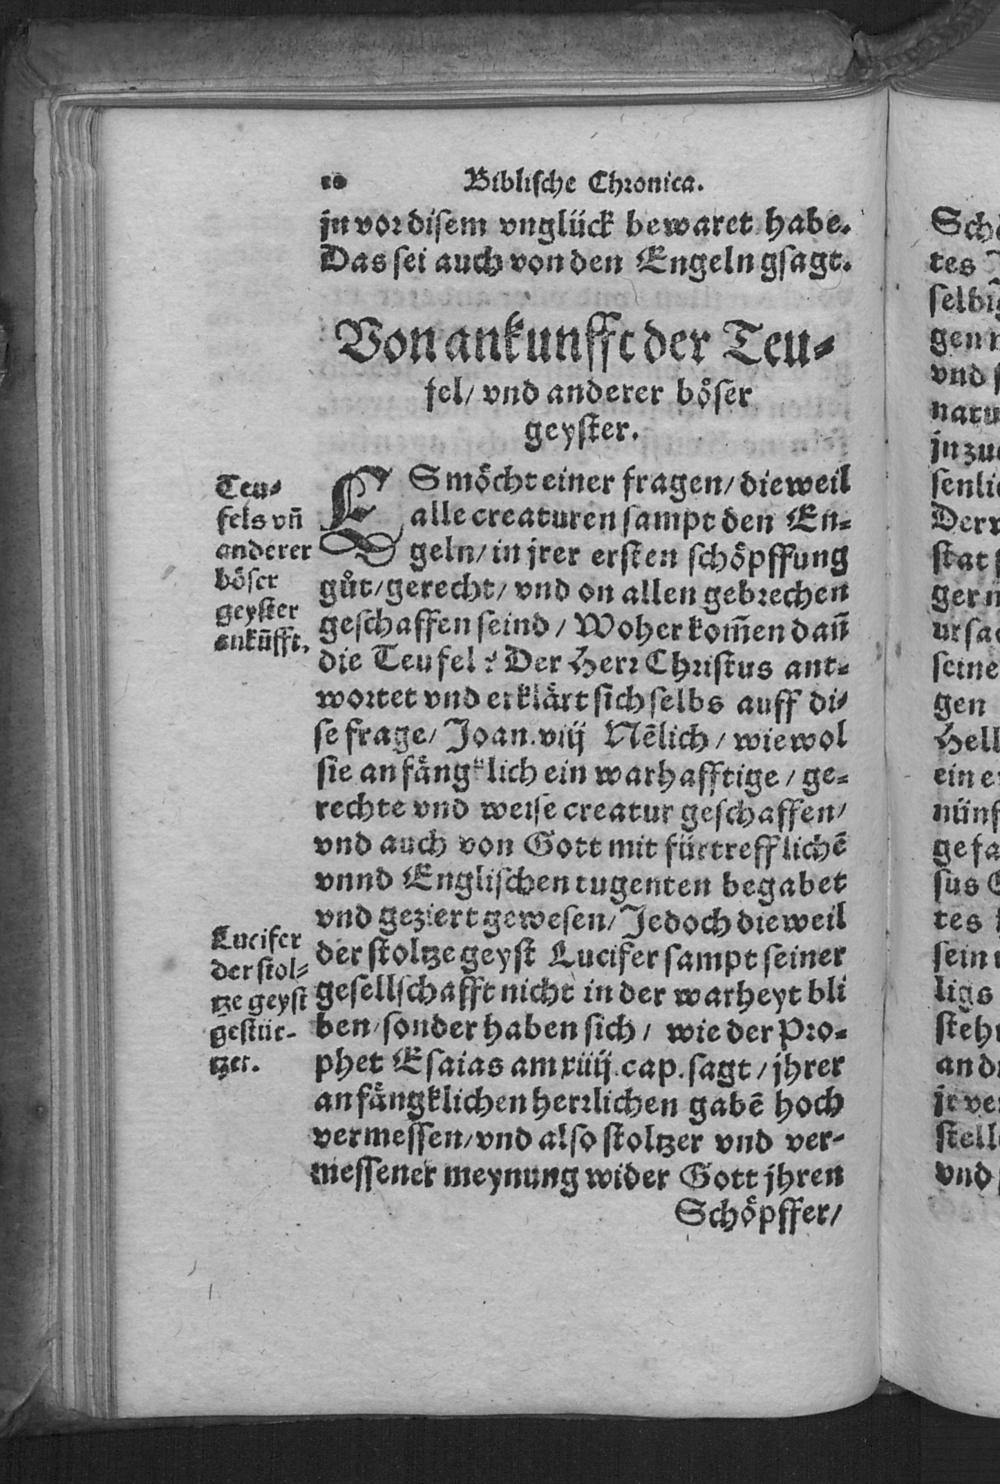 10 Biblische Chronica.
jn vor disem vnglück bewaret habe.
Das sei auch von den Engeln gsagt.
Von ankunfft der Teu⸗
fel/ vnd anderer böser
geyster.
Teu⸗
fels vn̄
anderer
böser
geyster
ankūfft.
ES möcht einer fragen/ dieweil
alle creaturen sampt den En⸗
geln/ in jrer ersten schöpffung
gůt/ gerecht/ vnd on allen gebrechen
geschaffen seind/ Woher kom̄en dan̄
die Teufel? Der Herr Christus ant⸗
wortet vnd erklärt sich selbs auff di⸗
se frage/ Joan.viij Nēlich/ wiewol
sie anfängklich ein warhafftige/ ge⸗
rechte vnd weise creatur geschaffen/
vnd auch von Gott mit fürtrefflichē
vnnd Englischen tugenten begabet
vnd geziert gewesen/ Jedoch dieweil
der stoltze geyst Lucifer sampt seiner
gesellschafft nicht in der warheyt bli
ben/ sonder haben sich/ wie der Pro⸗
phet Esaias am xiiij.cap.sagt/ jhrer
anfängklichen herrlichen gabē hoch
vermessen/ vnd also stoltzer vnd ver⸗
messener meynung wider Gott jhren
Schöpffer/
Lucifer
der stol⸗
tze geyst
gestür⸗
tzet.
tes
selbig
gen
vnd
natu
jn zu
senli
Der
stat
ger
ursa
seine
gen
Hell
ein
nünf
gefa
sus
tes
sein
ligs
steh
and
jr ve
stell
vnd